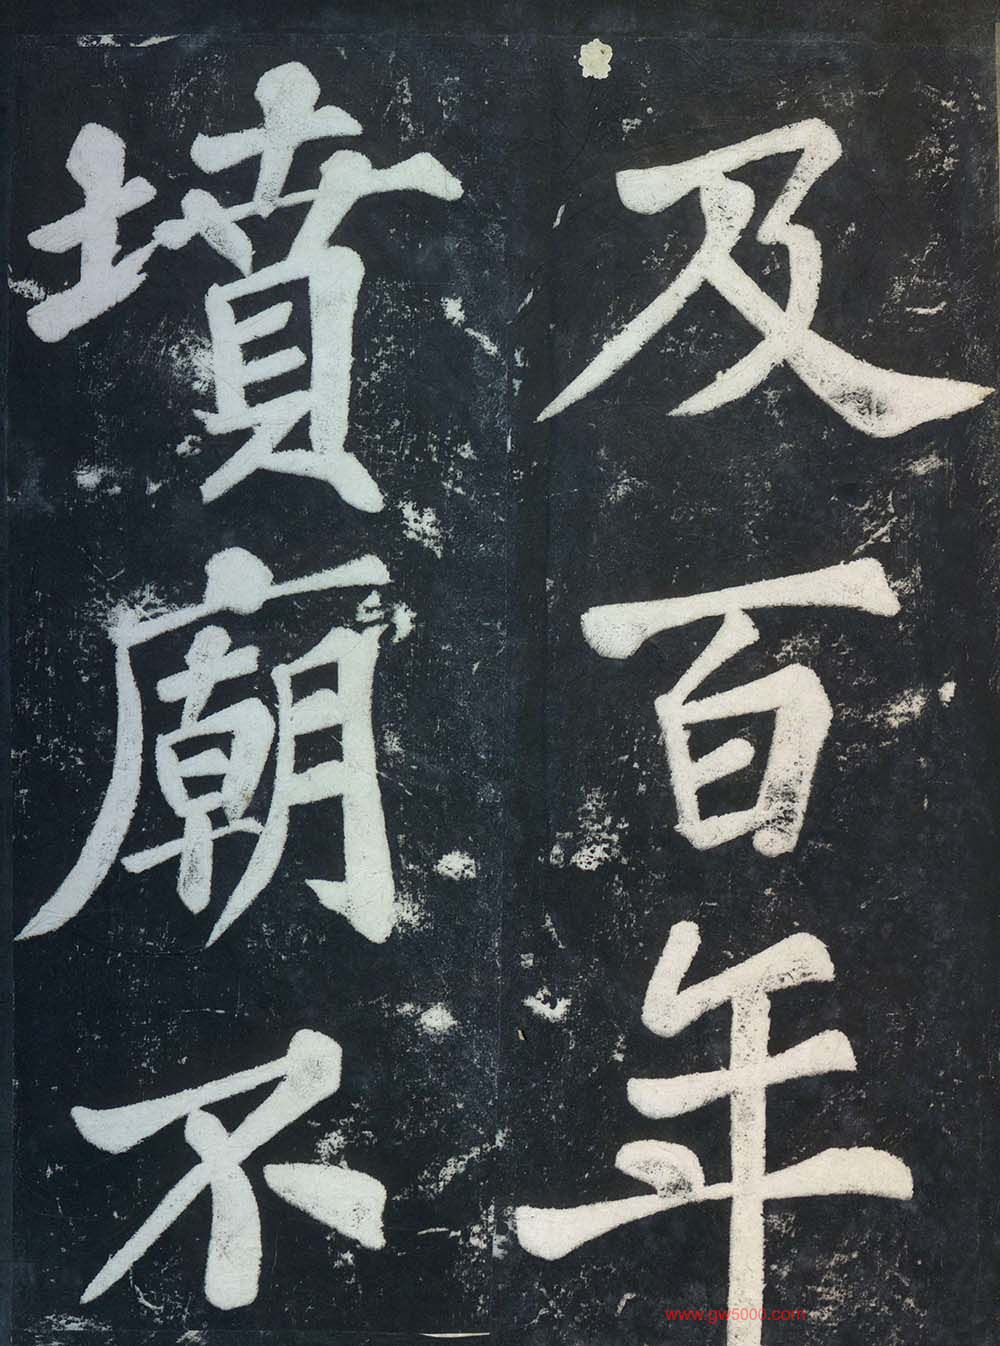 及百年
墳廟不
www.gw5000.com